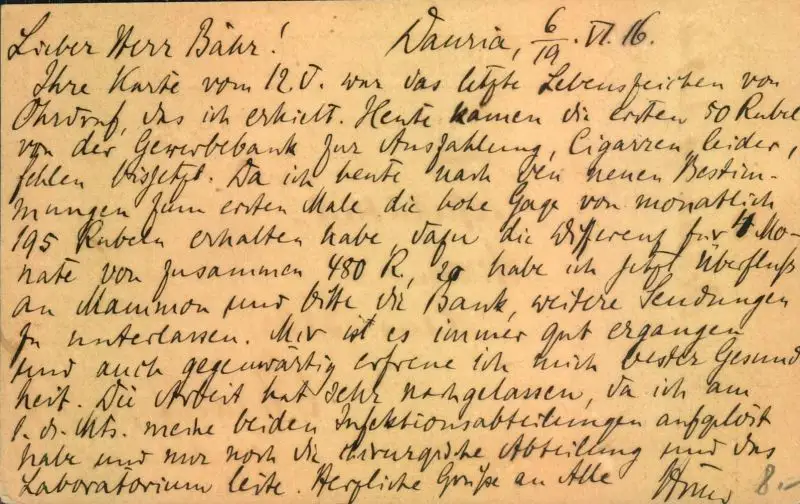 Lieber Herr Bähr! Dauria, 6/19. VI. 16.
Ihre Karte vom 12.V. war das letzte Lebenszeichen von
Ohrdruf, das ich erhielt. Heute kamen die ersten 50 Rubel
von der Gewerbebank zur Auszahlung, Cigarren, leider,
fehlen bisjetzt. Da ich heute nach den neuen Bestim-
mungen zum ersten Male die hohe Gage von monatlich
195 Rubeln erhalten habe, dazu die Differenz für 4 Mo-
nate von zusammen 480 R, so habe ich jetzt Überfluß
an Mammon und bitte die Bank, weitere Sendungen
zu unterlassen. Mir ist es immer gut ergangen
und auch gegenwärtig erfreue ich mich bester Gesund
heit. Die Arbeit hat sehr nachgelassen, da ich am
1. ds. Mts. meine beiden Infektionsabteilungen aufgelöst
habe und nur noch die chirurgische Abteilung und das
Laboratorium leite. Herzliche Grüße an Alle
8.–